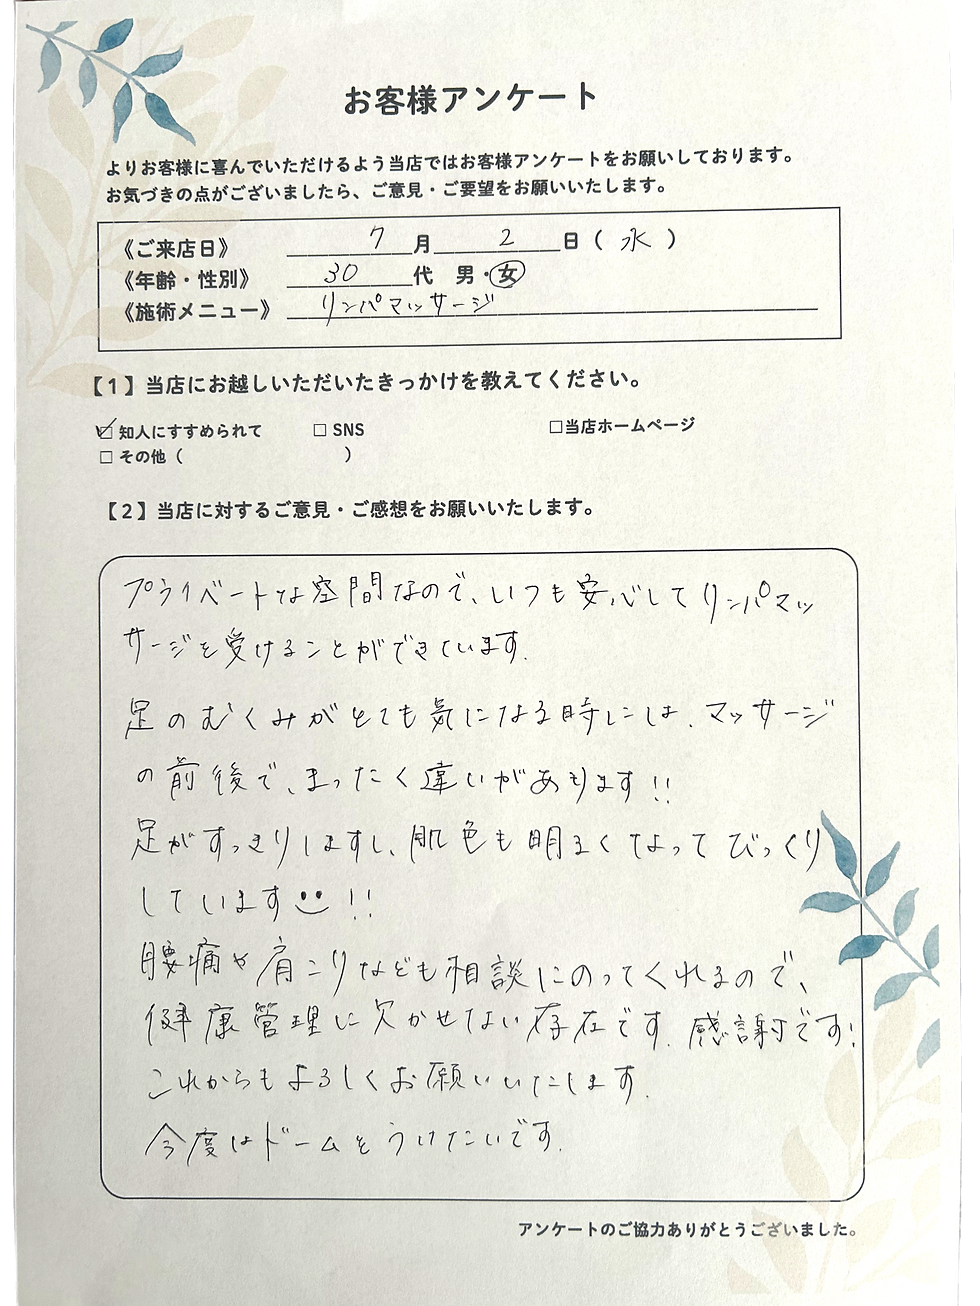 お客様アンケート
よりお客様に喜んでいただけるよう当店ではお客様アンケートをお願いしております。
お気づきの点がございましたら、ご意見・ご要望をお願いいたします。
《ご来店日》 7月 2日（水）
《年齢・性別》 30代 男・女
《施術メニュー》 リンパマッサージ
【1】当店にお越しいただいたきっかけを教えてください。
☑ 知人にすすめられて □ SNS □当店ホームページ
□ その他（ ）
【2】当店に対するご意見・ご感想をお願いいたします。
プライベートな空間なので、いつも安心してリンパマッ
サージを受けることができています.
足のむくみがとても気になる時には、マッサージ
の前後で、まったく違いがあります!!
足がすっきりしますし、肌色も明るくなってびっくり
しています!!
腰痛や肩こりなども相談にのってくれるので、
健康管理に欠かせない存在です. 感謝です!
これからもよろしくお願いいたします.
今度はドームをうけたいです.
アンケートのご協力ありがとうございました。